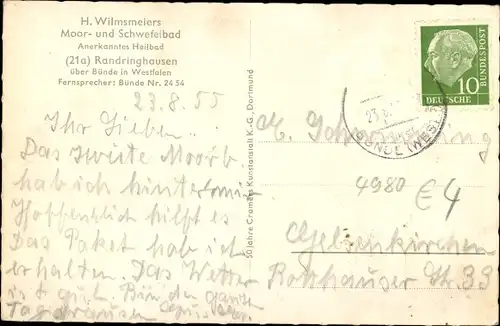 H. Wilmsmeiers
Moor- und Schwefelbad
Anerkanntes Heilbad
(21a) Randringhausen
über Bünde in Westfalen
Fernsprecher: Bünde Nr. 24 54
23.8.55
Ihr Lieben.
Das zweite Moorb
hab ich hinter mir
Hoffentlich hilft es
Das Paket hab ich
erhalten. Das Wetter
ist gut. Bin den ganzen
Tag draussen
50 Jahre Cramers Kunstanstalt K.-G., Dortmund
10
DEUTSCHE
BUNDESPOST
23.8.
BÜNDE (WESTF)
4980
€4
Gelsenkirchen
Rotthauser Str. 39